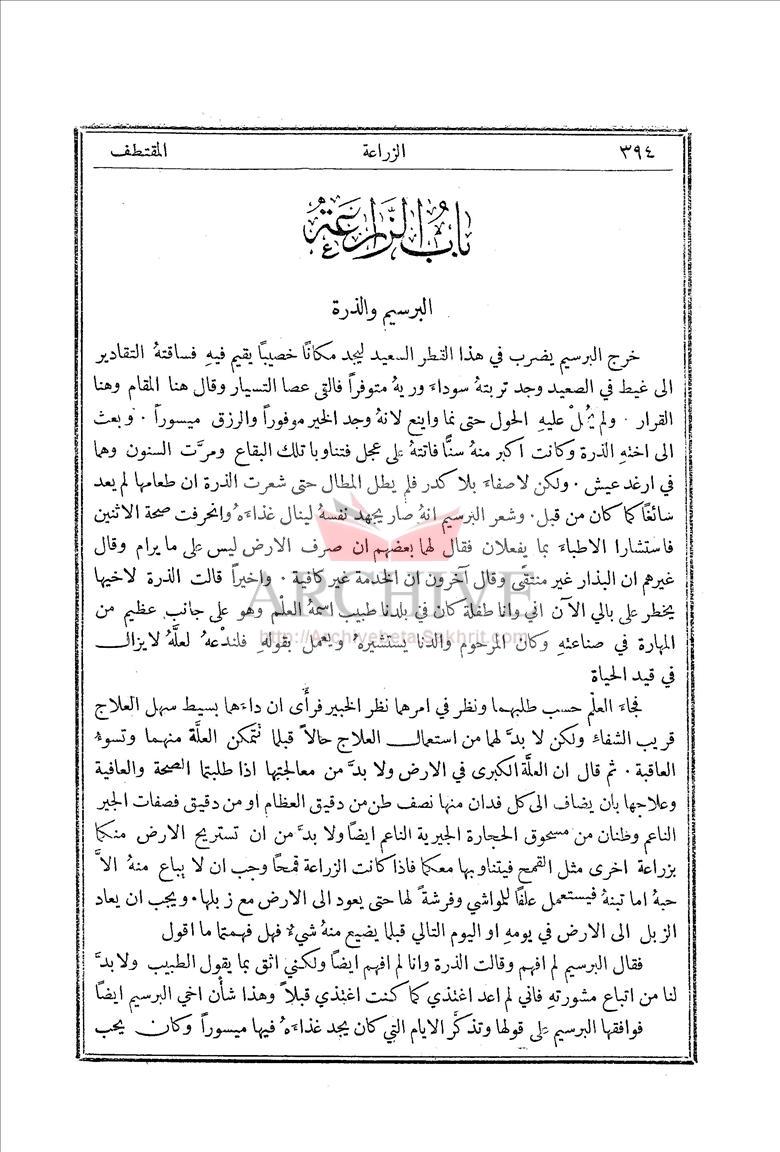 ٣٩٤ الزراعة المقتطف
باب الزراعة
البرسيم والذرة
خرج البرسيم يضرب في هذا القطر السعيد ليجد مكانًا خصيبًا يقيم فيهِ فساقتهُ التقادير
الى غيط في الصعيد وجد تربتهُ سوداء وريهُ متوفراً فالقى عصا التسيار وقال هنا المقام وهنا
القرار ٠ ولم يحُلْ عليهِ الحول حتى نما واينع لانهُ وجد الخير موفوراً والرزق ميسوراً ٠ وبعث
الى اختهِ الذرة وكانت اكبر منهُ سنًّا فاتتهُ على عجل فتناوبا تلك البقاع ومرَّت السنون وهما
في ارغد عيش ٠ ولكن لا صفاء بلا كدر فلم يطل المطال حتى شعرت الذرة ان طعامها لم يعد
سائغًا كما كان من قبل ٠ وشعر البرسيم انهُ صار يجهد نفسهُ لينال غذاءهُ وانحرفت صحة الاثنين
فاستشارا الاطباء بما يفعلان فقال لها بعضهم ان صرف الارض ليس على ما يرام وقال
غيرهم ان البذار غير منتقى وقال آخرون ان الخدمة غير كافية ٠ واخيراً قالت الذرة لاخيها
يخطر على بالي الآن اني وانا طفلة كان في بلدنا طبيب اسمهُ العلْم وهو على جانب عظيم من
المهارة في صناعتهِ وكان المرحوم والدنا يستشيرهُ ويعمل بقولهِ فلندْعهُ لعلَّهُ لا يزال
في قيد الحياة
فجاء العلْم حسب طلبهما ونظر في امرهما نظر الخبير فرأى ان داءهما بسيط سهل العلاج
قريب الشفاء ولكن لا بدَّ لهما من استعمال العلاج حالاً قبلما تتمكن العلَّة منهما وتسوءُ
العاقبة ٠ ثم قال ان العلَّة الكبرى في الارض ولا بدَّ من معالجتها اذا طلبتما الصحة والعافية
وعلاجها بان يضاف الى كل فدان منها نصف طن من دقيق العظام او من دقيق فصفات الجير
الناعم وطنان من مسحوق الحجارة الجيرية الناعم ايضًا ولا بدَّ من ان تستريح الارض منكما
بزراعة اخرى مثل القمح فيتناوبها معكما فاذا كانت الزراعة قمحًا وجب ان لا يباع منهُ الاَّ
حبهُ اما تبنهُ فيستعمل علفًا للمواشي وفرشةً لها حتى يعود الى الارض مع زبلها ٠ ويجب ان يعاد
الزبل الى الارض في يومهِ او اليوم التالي قبلما يضيع منهُ شيءٌ فهل فهمتما ما اقول
فقال البرسيم لم افهم وقالت الذرة وانا لم افهم ايضًا ولكنني اثق بما يقول الطبيب ولا بدَّ
لنا من اتباع مشورتهِ فاني لم اعد اغتذي كما كنت اغتذي قبلاً وهذا شأن اخي البرسيم ايضًا
فوافقها البرسيم على قولها وتذكَّر الايام التي كان يجد غذاءهُ فيها ميسوراً وكان يحب
ARCHIVE
http://Archivebeta.Sakhrit.com